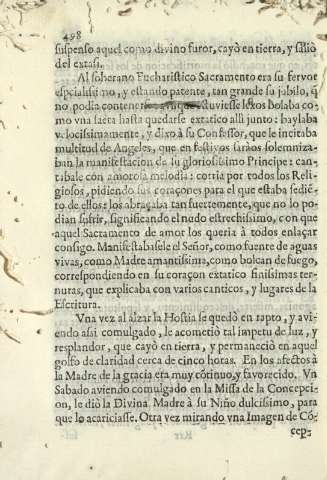 498
suspenso aquel como divino furor, cayò en tierra, y saliò
del extasi.
Al soberano Eucharistico Sacramento era su fervor
espcialissimo, y estando patente, tan grande su jubilo, q̃
no podia contener aunque estuviesse lexos bolaba co-
mo vna saeta hasta quedarse extatico alli junto: baylaba
velocissimamente, y dixo à su Confessor, que le incitaba
multitud de Angeles, que en festivos saraos solemniza-
ban la manifestacion de su gloriosissimo Principe: can-
tabale con amorosa melodia: corria por todos los Reli-
giosos, pidiendo sus coraçones para el que estaba sediẽ-
to de ellos: los abraçaba tan fuertemente, que no lo po-
dian sufrir, significando el nudo estrechissimo, con que
aquel Sacramento de amor los queria à todos enlaçar
consigo. Manifestabasele el Señor, como fuente de aguas
vivas, como Madre amantissima, como bolcan de fuego,
correspondiendo en su coraçon extatico finissimas ter-
nuras, que explicaba con varios canticos, y lugares de la
Escritura.
Vna vez al alzar la Hostia se quedò en rapto, y avi-
endo assi comulgado, le acometiò tal impetu de luz, y
resplandor, que cayò en tierra, y permaneciò en aquel
golfo de claridad cerca de cinco horas. En los afectos à
la Madre de la gracia era muy cõtinuo, y favorecido. Vn
Sabado aviendo comulgado en la Missa de la Concepci-
on, le diò la Divina Madre à su Niño dulcissimo, para
que lo acariciasse. Otra vez mirando vna Imagen de Cõ-
cep-